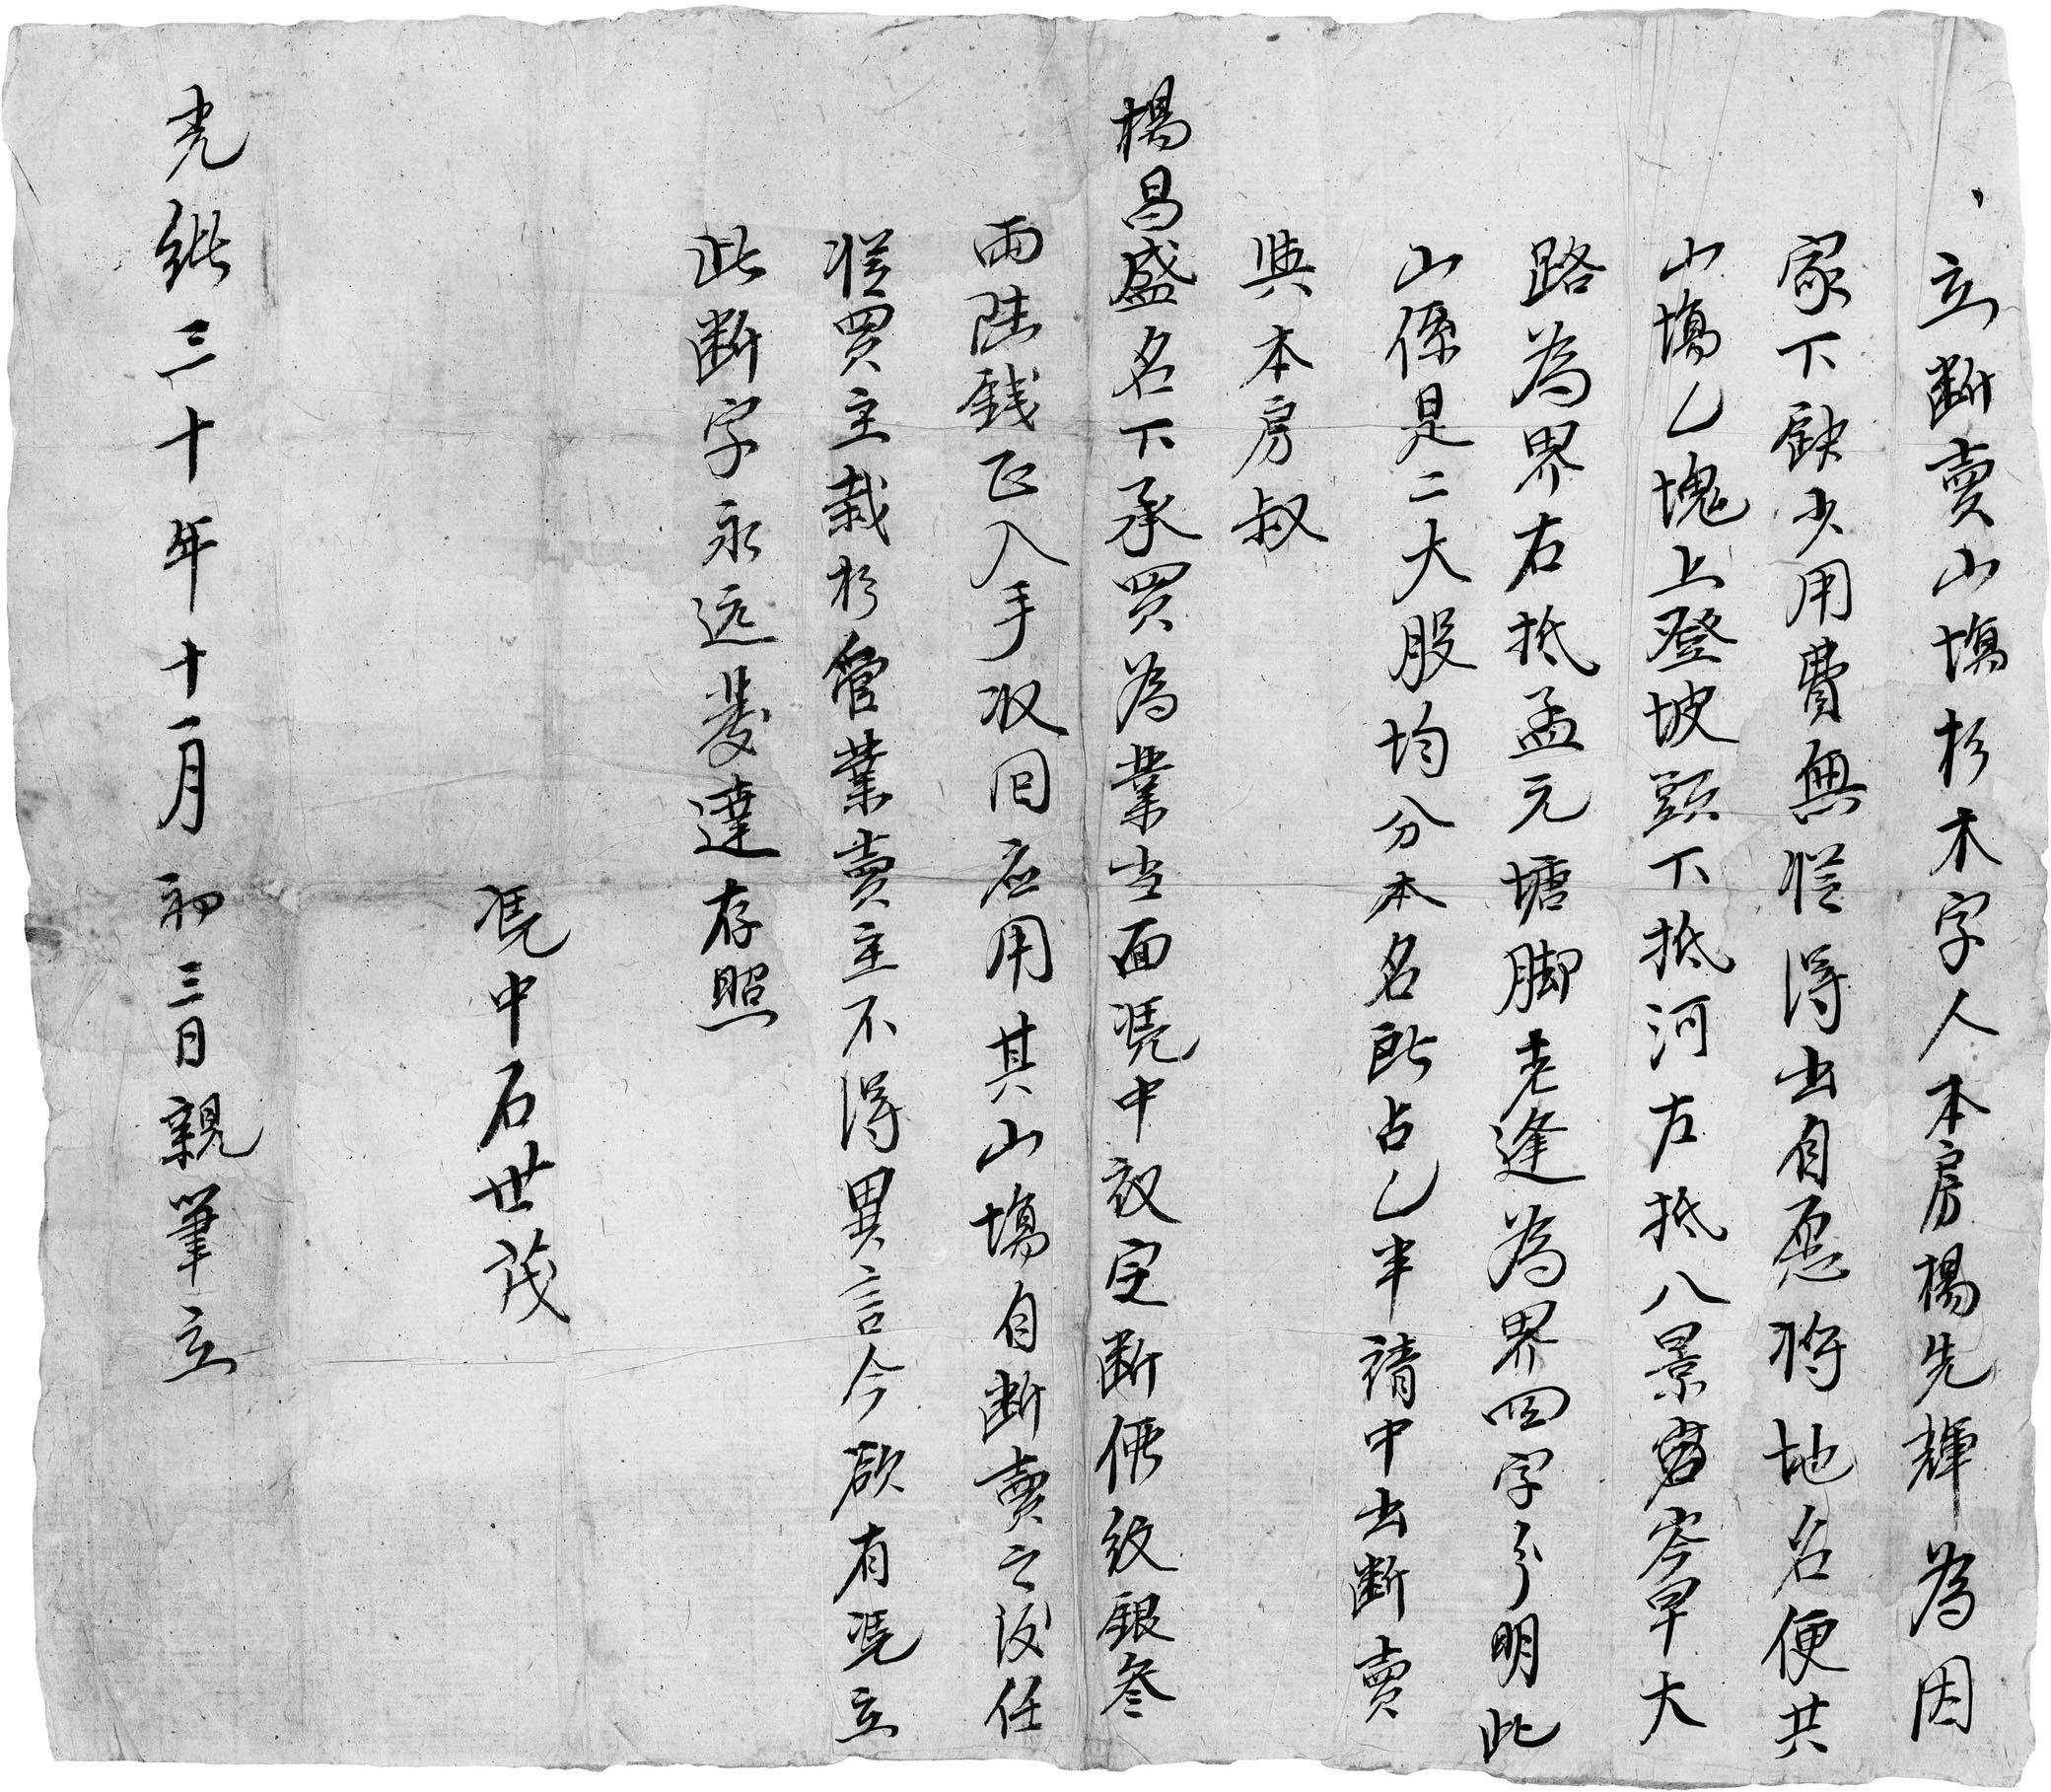 立断賣山塲杉木字人本房楊先輝為因
家下缺少用費無從得出自愿将地名便共
山塲乙塊上登坡頭下抵河左抵八景岑旱大
路為界右抵孟元塘脚老逢為界四字分明此
山係是二大股均分本名所占乙半請中出断賣
與本房叔
楊昌盛名下承買為業当面凭中议定断價紋銀叁
両陆銭正入手收囘应用其山塲自断賣之后任
從買主栽杉管業賣主不得異言今欲有凭立
此断字永远發達存照
凭中石世茂
光緒三十年十一月初三日親筆立